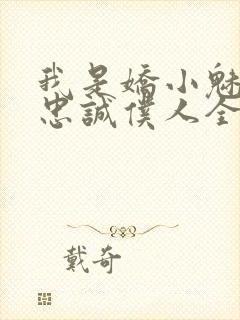 我是嬌小魅
忠誠僕人全
戴奇